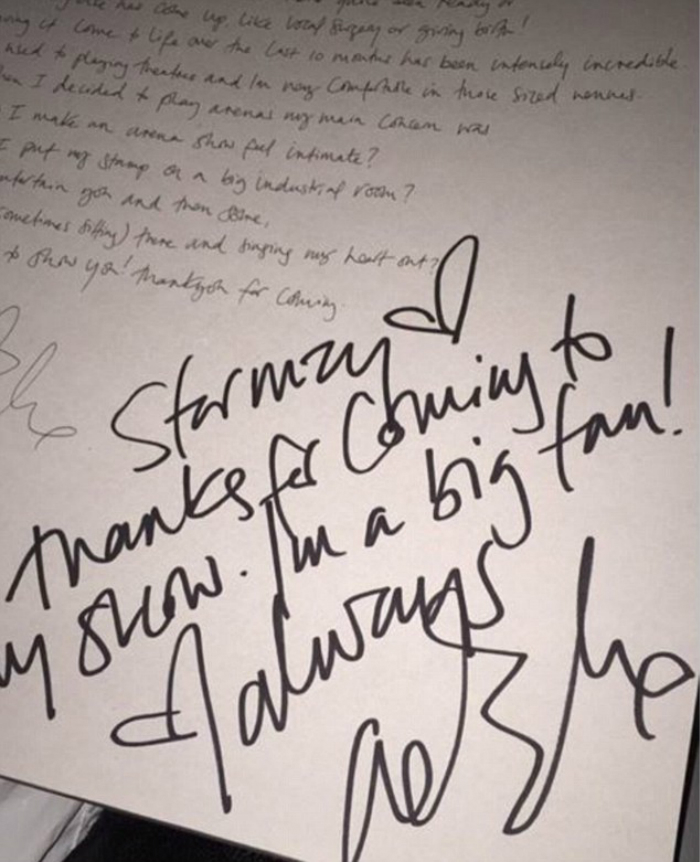 has come up, like vocal surgery or giving birth!
it come to life over the last 10 months has been intensely incredible.
used to playing theatres and Im very comfortable in those sized venues.
I decided to play arenas my main concern was
I make an arena show feel intimate?
I put my stamp on a big industrial room?
you and then some,
sitting) there and singing my heart out?
to show you! thankyou for coming.
Stormzy
thanks for Coming to
my show. I'm a big fan!
always